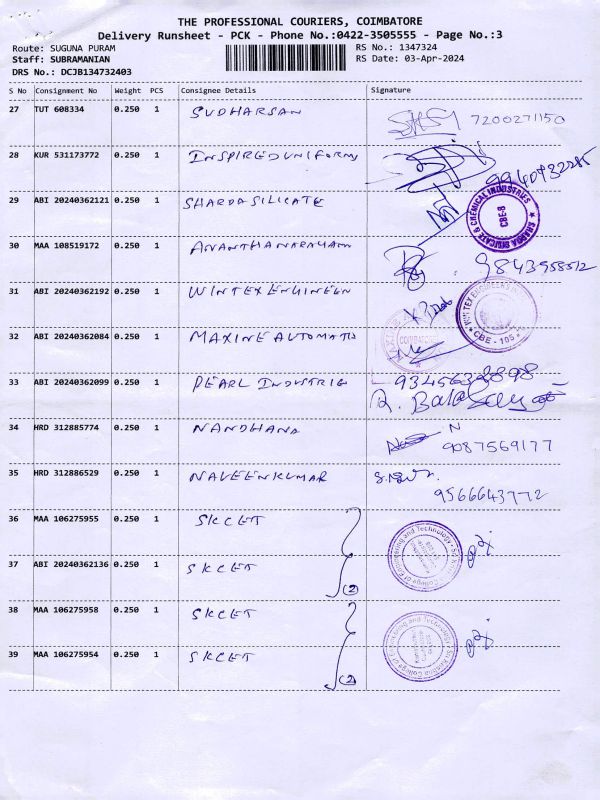 THE PROFESSIONAL COURIERS, COIMBATORE
Delivery Runsheet - PCK - Phone No.:0422-3505555 - Page No.:3
Route: SUGUNA PURAM RS No.: 1347324
Staff: SUBRAMANIAN RS Date: 03-Apr-2024
DRS No.: DCJB134732403
S No Consignment No Weight PCS Consignee Details Signature
27 TUT 608334 0.250 1 SUDHARSAN 7200271150
28 KUR 531173772 0.250 1 INSPIREDUNIFORMS
29 ABI 20240362121 0.250 1 SHARDA SILICATE
SHARDA SILICATE & CHEMICAL INDUSTRIES
CBE-8
30 MAA 108519172 0.250 1 ANANTHANARAYANN 9843958512
31 ABI 20240362192 0.250 1 WINTEX ENGINEEN
WINTEX ENGINEERS
CBE - 105
32 ABI 20240362084 0.250 1 MAXINE AUTOMATS
33 ABI 20240362099 0.250 1 PEARL INDUSTRIE
34 HRD 312885774 0.250 1 NANDHANA N
9087569177
35 HRD 312886529 0.250 1 NAVEENKUMAR
9566643772
36 MAA 106275955 0.250 1 SKCET
37 ABI 20240362136 0.250 1 SKCET (2)
College of Engineering and Technology
38 MAA 106275958 0.250 1 SKCET
39 MAA 106275954 0.250 1 SKCET (2)
College of Engineering and Technology